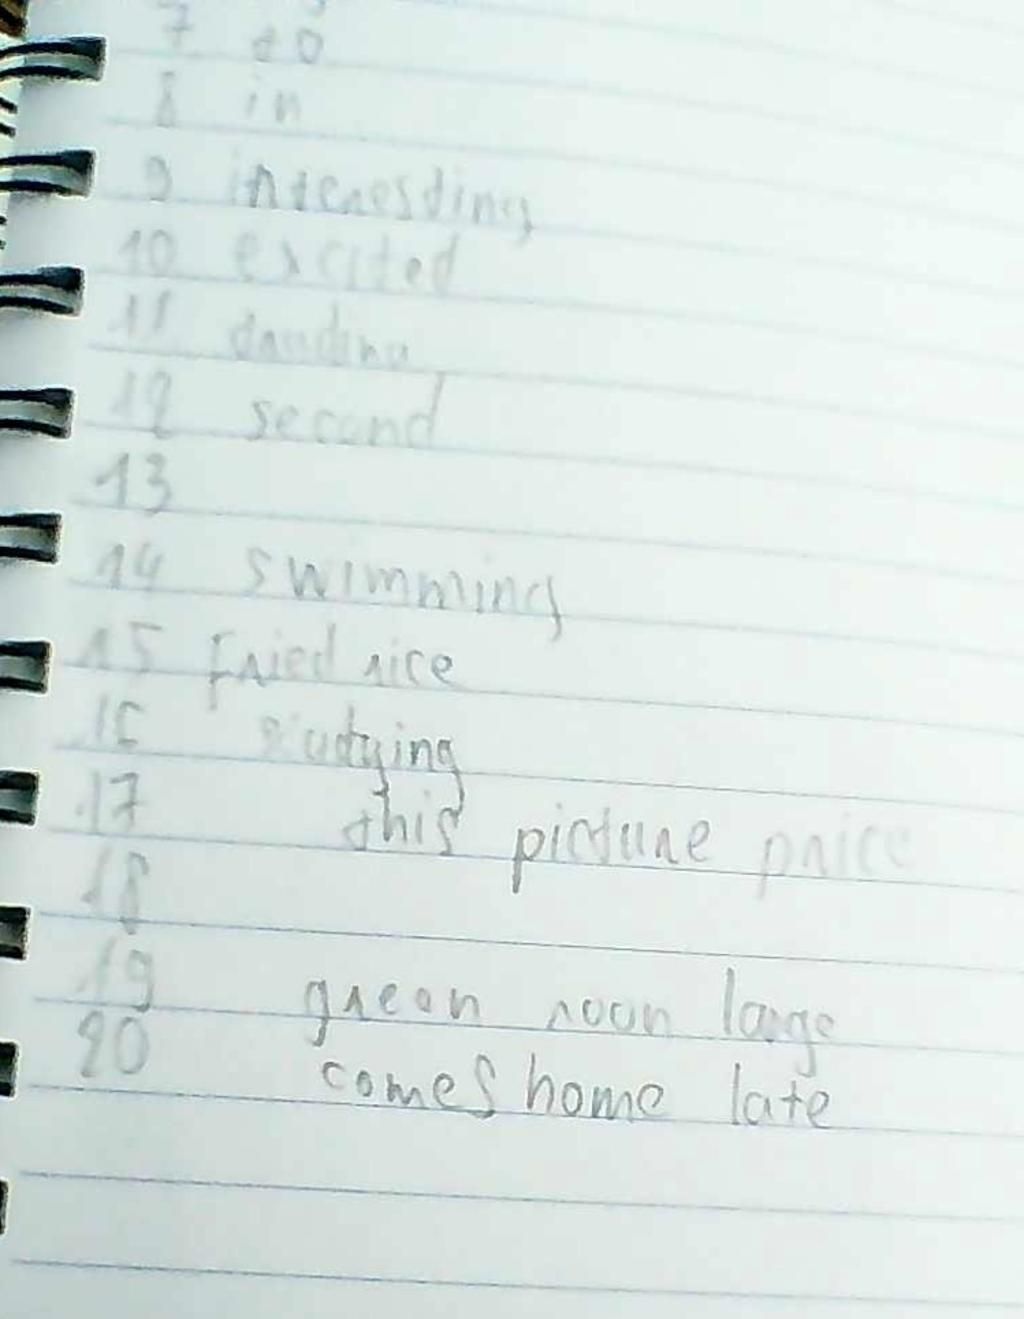 7 to
8 in
9 interesding
10 excited
11
12 second
13
14 swimming
15 Fried rice
16 studying
17 this picture price
18
19 green roon large
20 comes home late